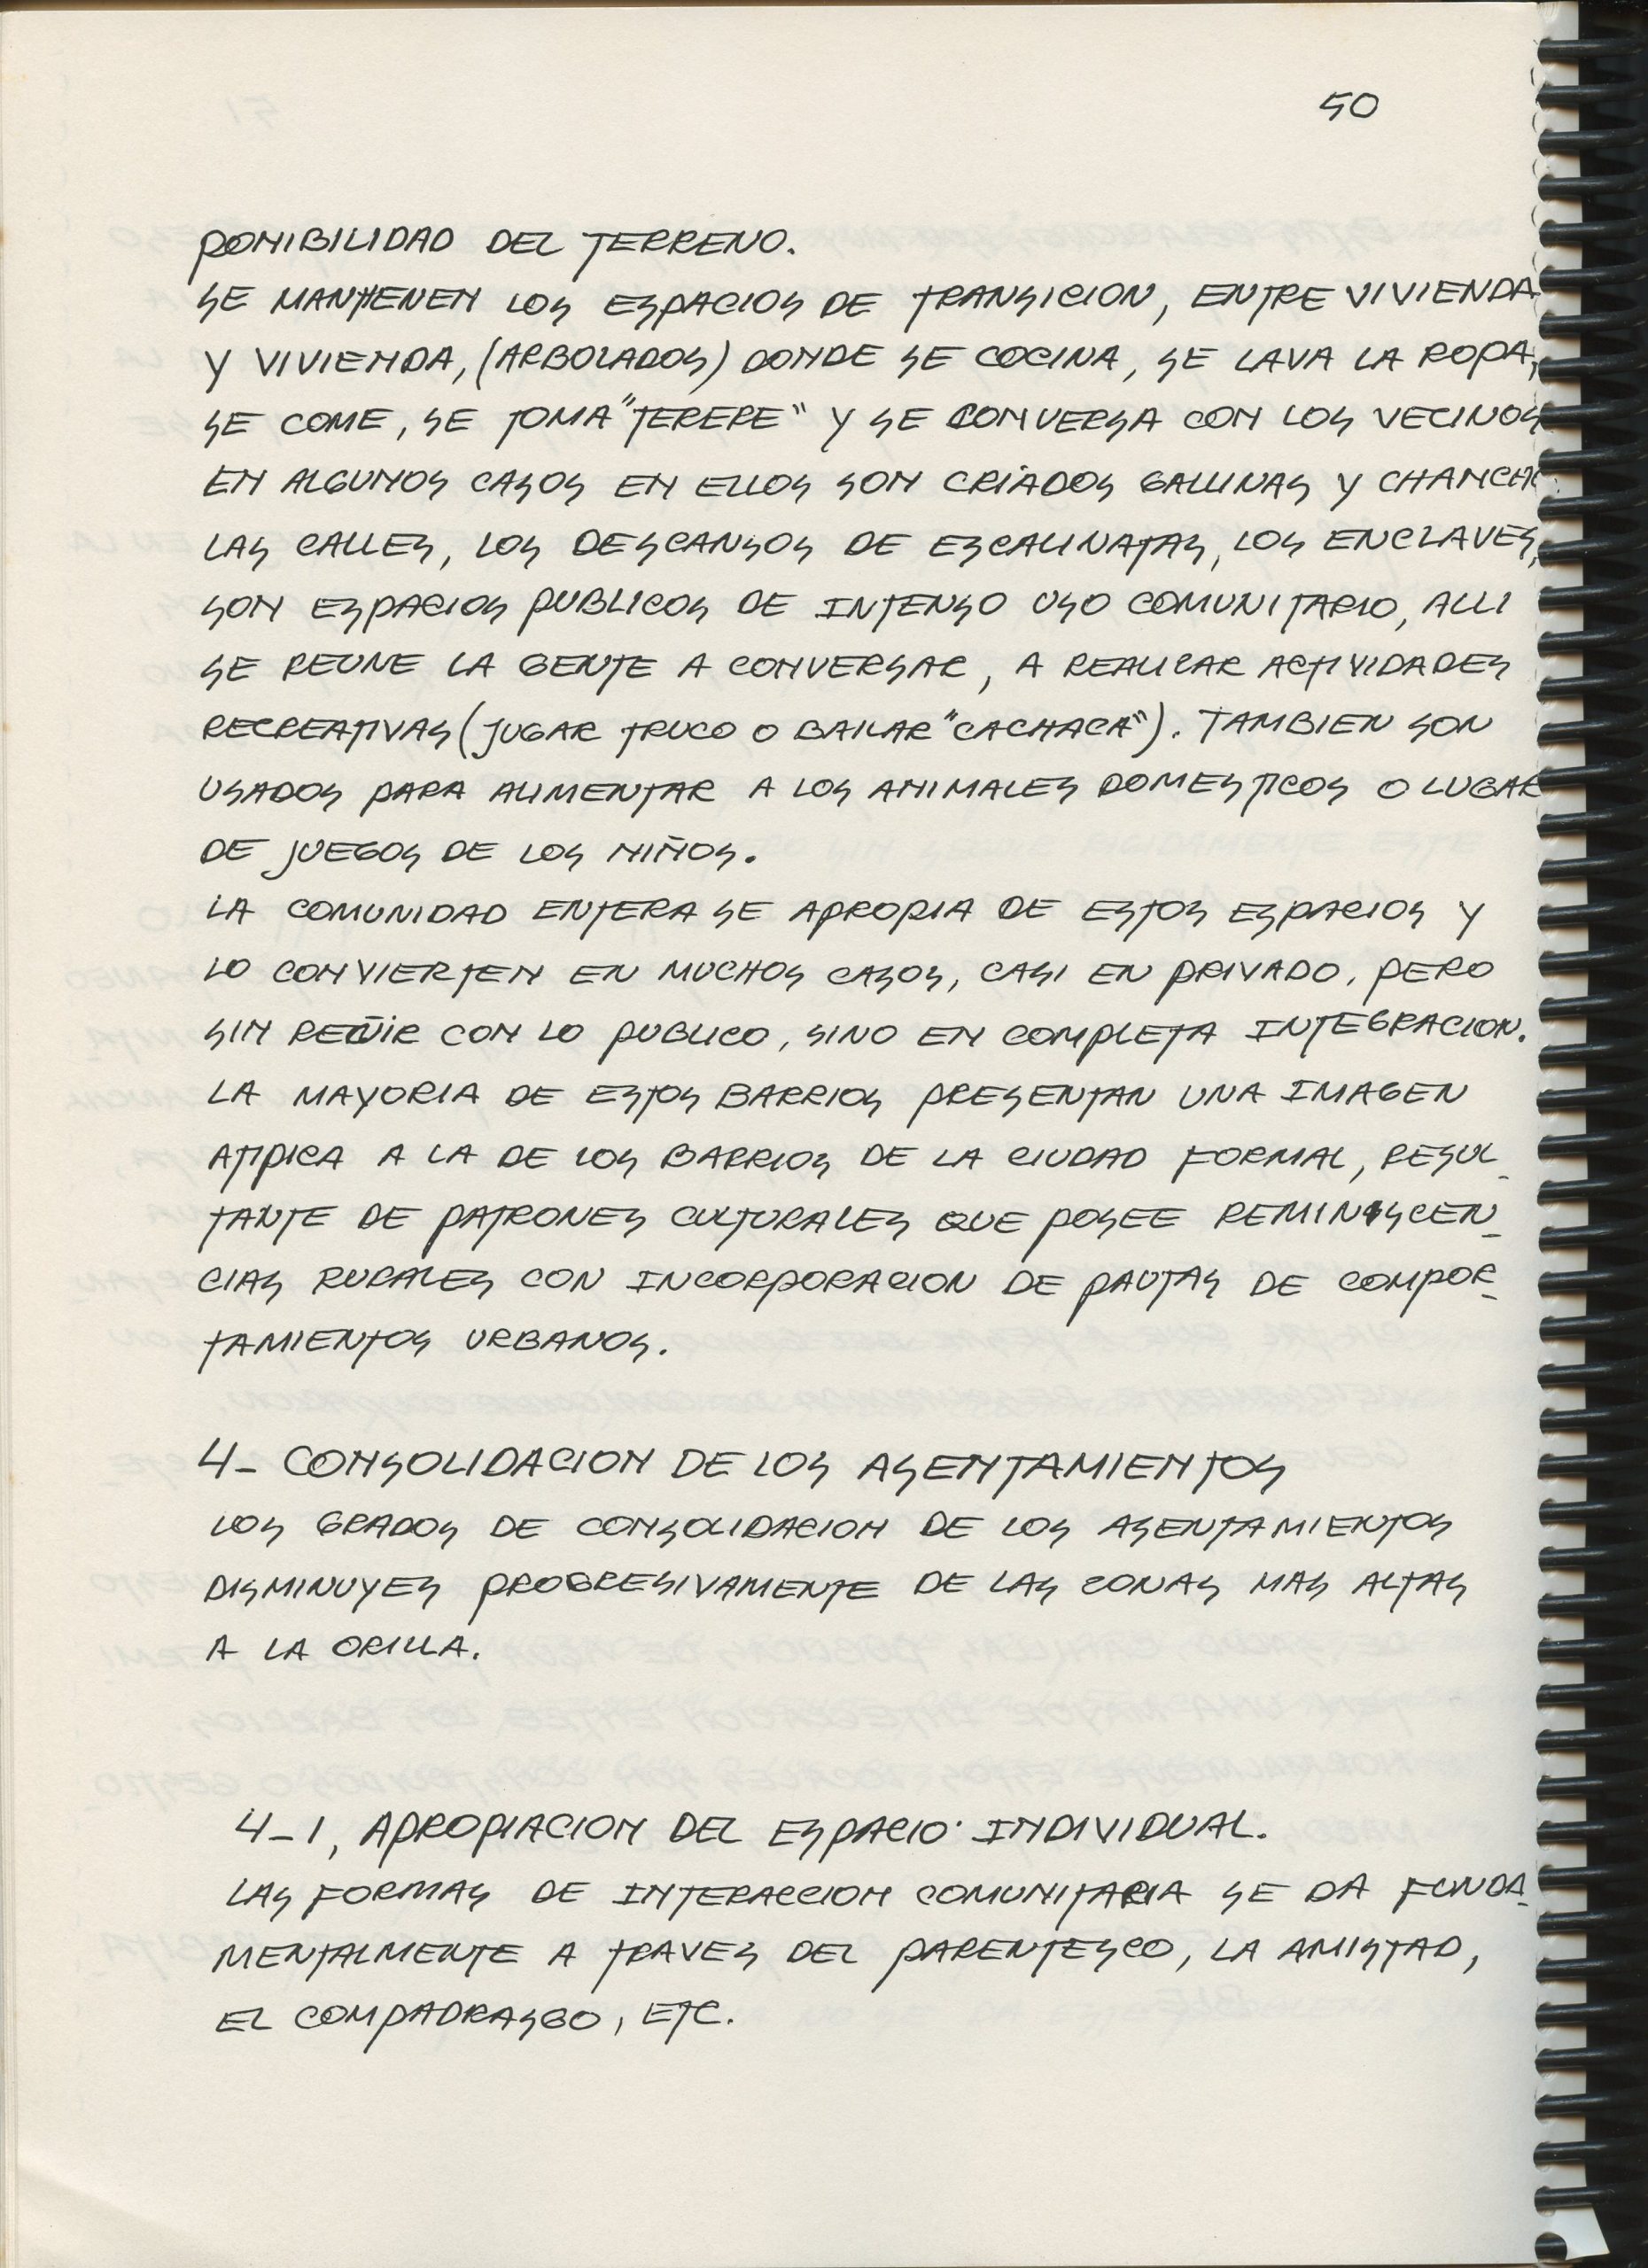 50
PONIBILIDAD DEL TERRENO.
SE MANTIENEN LOS ESPACIOS DE TRANSICION, ENTRE VIVIENDA
Y VIVIENDA, (ARBOLADOS) DONDE SE COCINA, SE LAVA LA ROPA,
SE COME, SE TOMA "TERERE" Y SE CONVERSA CON LOS VECINOS
EN ALGUNOS CASOS EN ELLOS SON CRIADOS GALLINAS Y CHANCHO
LAS CALLES, LOS DESCANSOS DE ESCALINATAS, LOS ENCLAVES,
SON ESPACIOS PUBLICOS DE INTENSO USO COMUNITARIO, ALLI
SE REUNE LA GENTE A CONVERSAR, A REALIZAR ACTIVIDADES
RECREATIVAS (JUGAR TRUCO O BAILAR "CACHACA"). TAMBIEN SON
USADOS PARA ALIMENTAR A LOS ANIMALES DOMESTICOS O LUGAR
DE JUEGOS DE LOS NIÑOS.
LA COMUNIDAD ENTERA SE APROPIA DE ESTOS ESPACIOS Y
LO CONVIERTEN EN MUCHOS CASOS, CASI EN PRIVADO, PERO
SIN REÑIR CON LO PUBLICO, SINO EN COMPLETA INTEGRACION.
LA MAYORIA DE ESTOS BARRIOS PRESENTAN UNA IMAGEN
ATIPICA A LA DE LOS BARRIOS DE LA CIUDAD FORMAL, RESUL_
TANTE DE PATRONES CULTURALES QUE POSEE REMINISCEN_
CIAS RURALES CON INCORPORACION DE PAUTAS DE COMPOR_
TAMIENTOS URBANOS.
4_ CONSOLIDACION DE LOS ASENTAMIENTOS
LOS GRADOS DE CONSOLIDACION DE LOS ASENTAMIENTOS
DISMINUYES PROGRESIVAMENTE DE LAS ZONAS MAS ALTAS
A LA ORILLA.
4_1, APROPIACION DEL ESPACIO INDIVIDUAL.
LAS FORMAS DE INTERACCION COMUNITARIA SE DA FUNDA_
MENTALMENTE A TRAVES DEL PARENTESCO, LA AMISTAD,
EL COMPADRASGO, ETC.